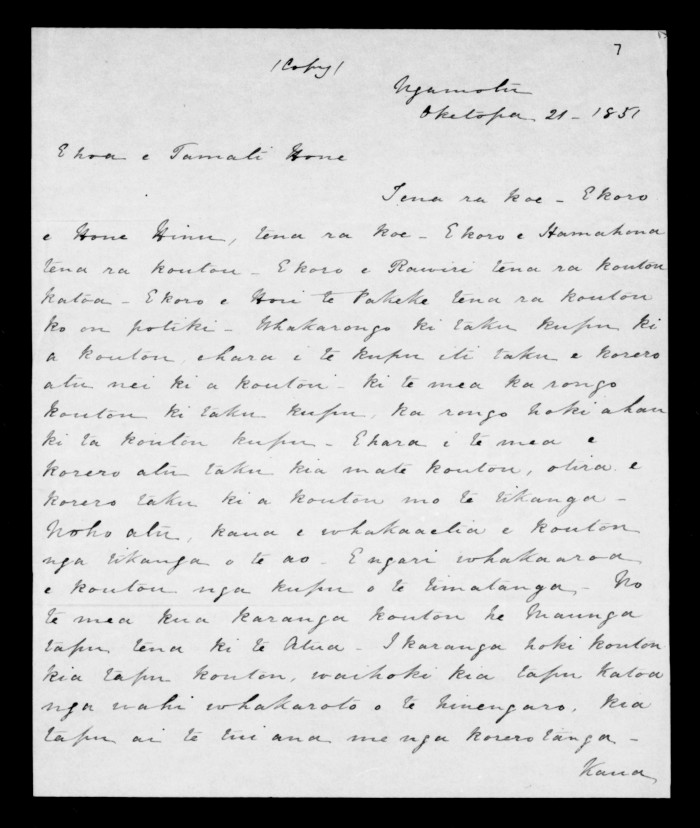 7
(Copy)
Ngamotu
Oketopa 21 - 1851
E hoa e Tamati Hone
Tena ra koe - E koro
e Hone Hinu, tena ra koe - E koro e Hamahona
tena ra koutou - E koro e Rawiri tena ra koutou
katoa - E koro e Hori te Pakeke tena ra koutou
ko ou potiki - Whakarongo ki taku kupu ki
a koutou, ehara i te kupu iti taku e korero
atu nei ki a koutou - ki te mea ka rongo
koutou ki taku kupu, ka rongo hoki ahau
ki ta koutou kupu - Ehara i te mea e
korero atu taku kia mate koutou, otira e
korero taku ki a koutou mo te tikanga -
Noho atu, kaua e whakaaetia e koutou
nga tikanga o te ao - Engari whakaaroa
e koutou nga kupu o te timatanga - No
te mea kua karanga koutou he Maunga
tapu tena ki te Atua - I karanga hoki koutou
kia tapu koutou, waihoki kia tapu katoa
nga wahi whakaroto o te hinengaro, kia
tapu ai te tui ana me nga korerotanga -
Kaua